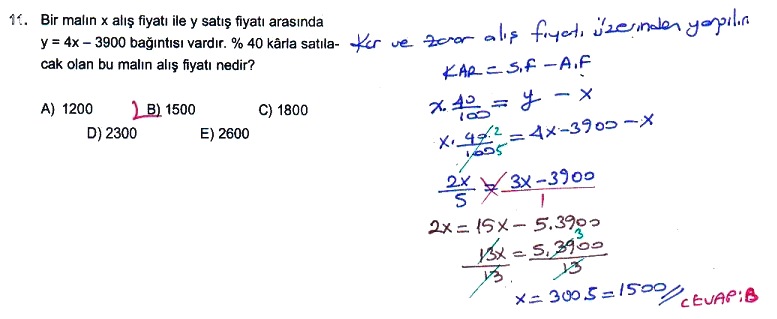 11. Bir malın x alış fiyatı ile y satış fiyatı arasında
y = 4x – 3900 bağıntısı vardır. % 40 kârla satıla-
cak olan bu malın alış fiyatı nedir?
A) 1200 B) 1500 C) 1800
D) 2300 E) 2600
Kar ve zarar alış fiyatı üzerinden yapılır
KAR = S.F – A.F
x. 40/100 = y – x
x. 40 2/100 5 = 4x – 3900 – x
2x/5 = 3x – 3900/1
2x = 15x – 5.3900
13x/13 = 5.3900 3/13
x = 300.5 = 1500// CEVAP: B